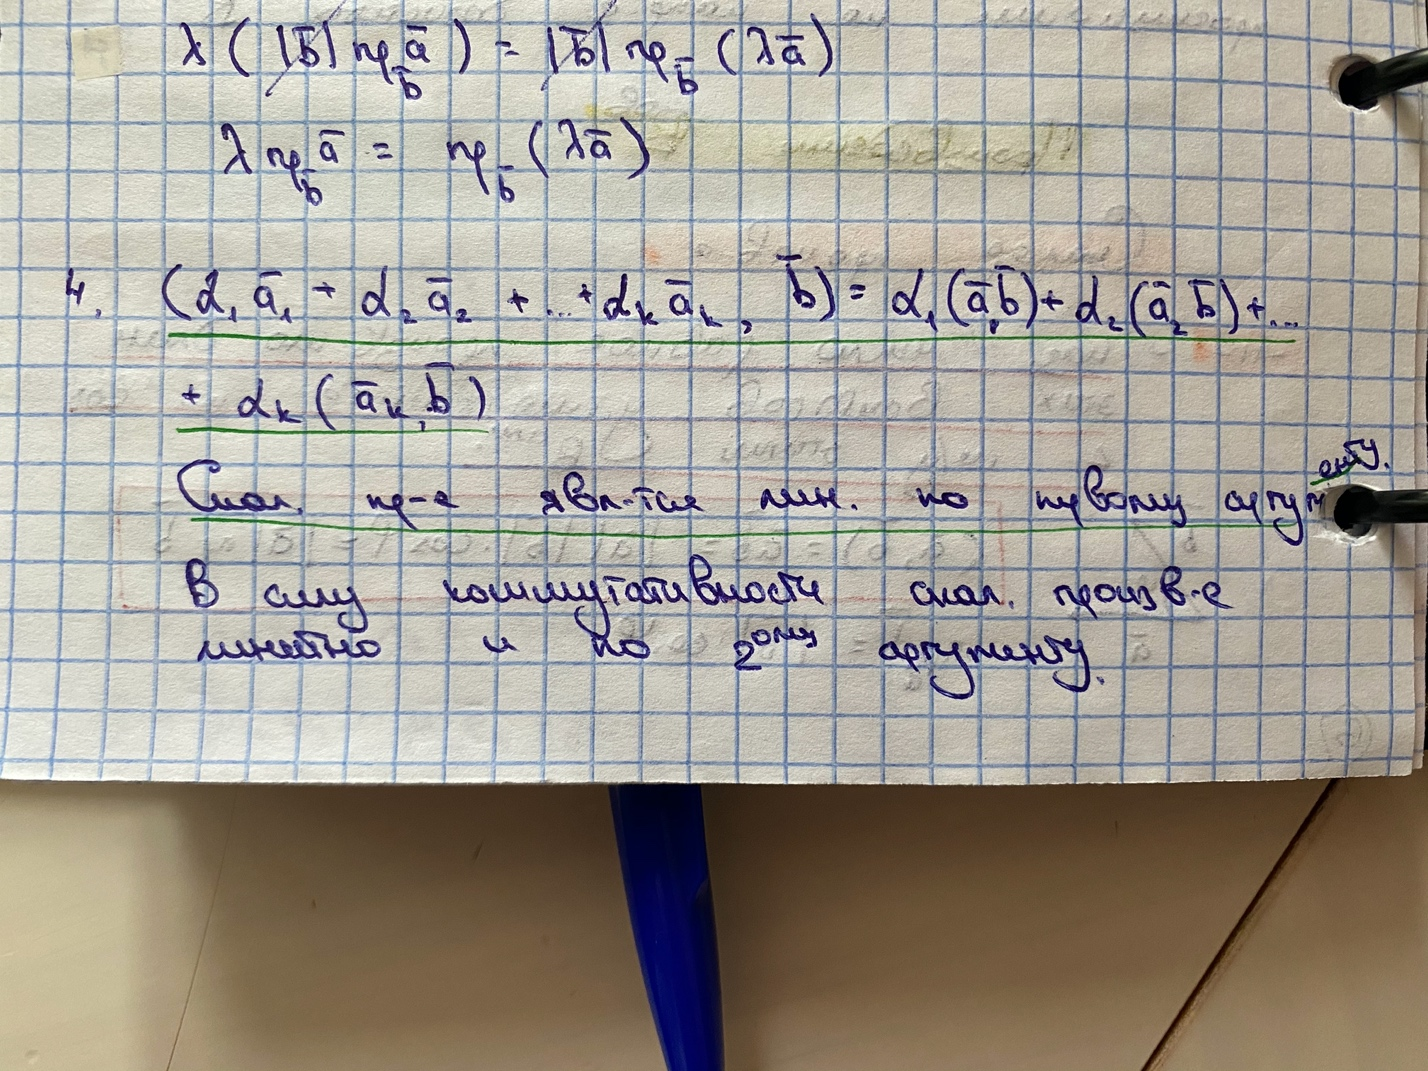 λ ( |b̄| пр_b̄ ā ) = |b̄| пр_b̄ (λā)
λ пр_b̄ ā = пр_b̄ (λā)
4. (α₁ā₁ + α₂ā₂ + ... + αₖāₖ, b̄) = α₁(ā₁b̄) + α₂(ā₂b̄) + ...
+ αₖ(āₖ, b̄)
Скал. пр-е явл-тся лин. по первому аргументу.
В силу коммутативности скал. произв-е
линейно и по 2ому аргументу.